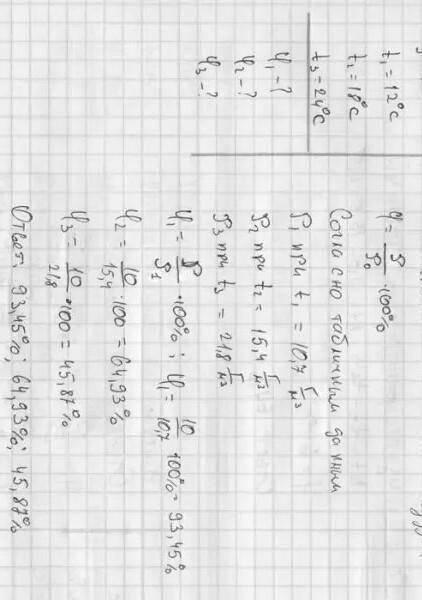 t₁ = 12°C
t₂ = 18°C
t₃ = 24°C
φ₁ - ?
φ₂ - ?
φ₃ - ?
φ = ρ/ρ₀ · 100%
Согласно табличным данным
ρ₁ при t₁ = 10,7 г/м³
ρ₂ при t₂ = 15,4 г/м³
ρ₃ при t₃ = 21,8 г/м³
φ₁ = ρ/ρ₁ · 100% ; φ₁ = 10/10,7 · 100% = 93,45%
φ₂ = 10/15,4 · 100 = 64,93%
φ₃ = 10/21,8 · 100 = 45,87%
Ответ: 93,45%; 64,93%; 45,87%